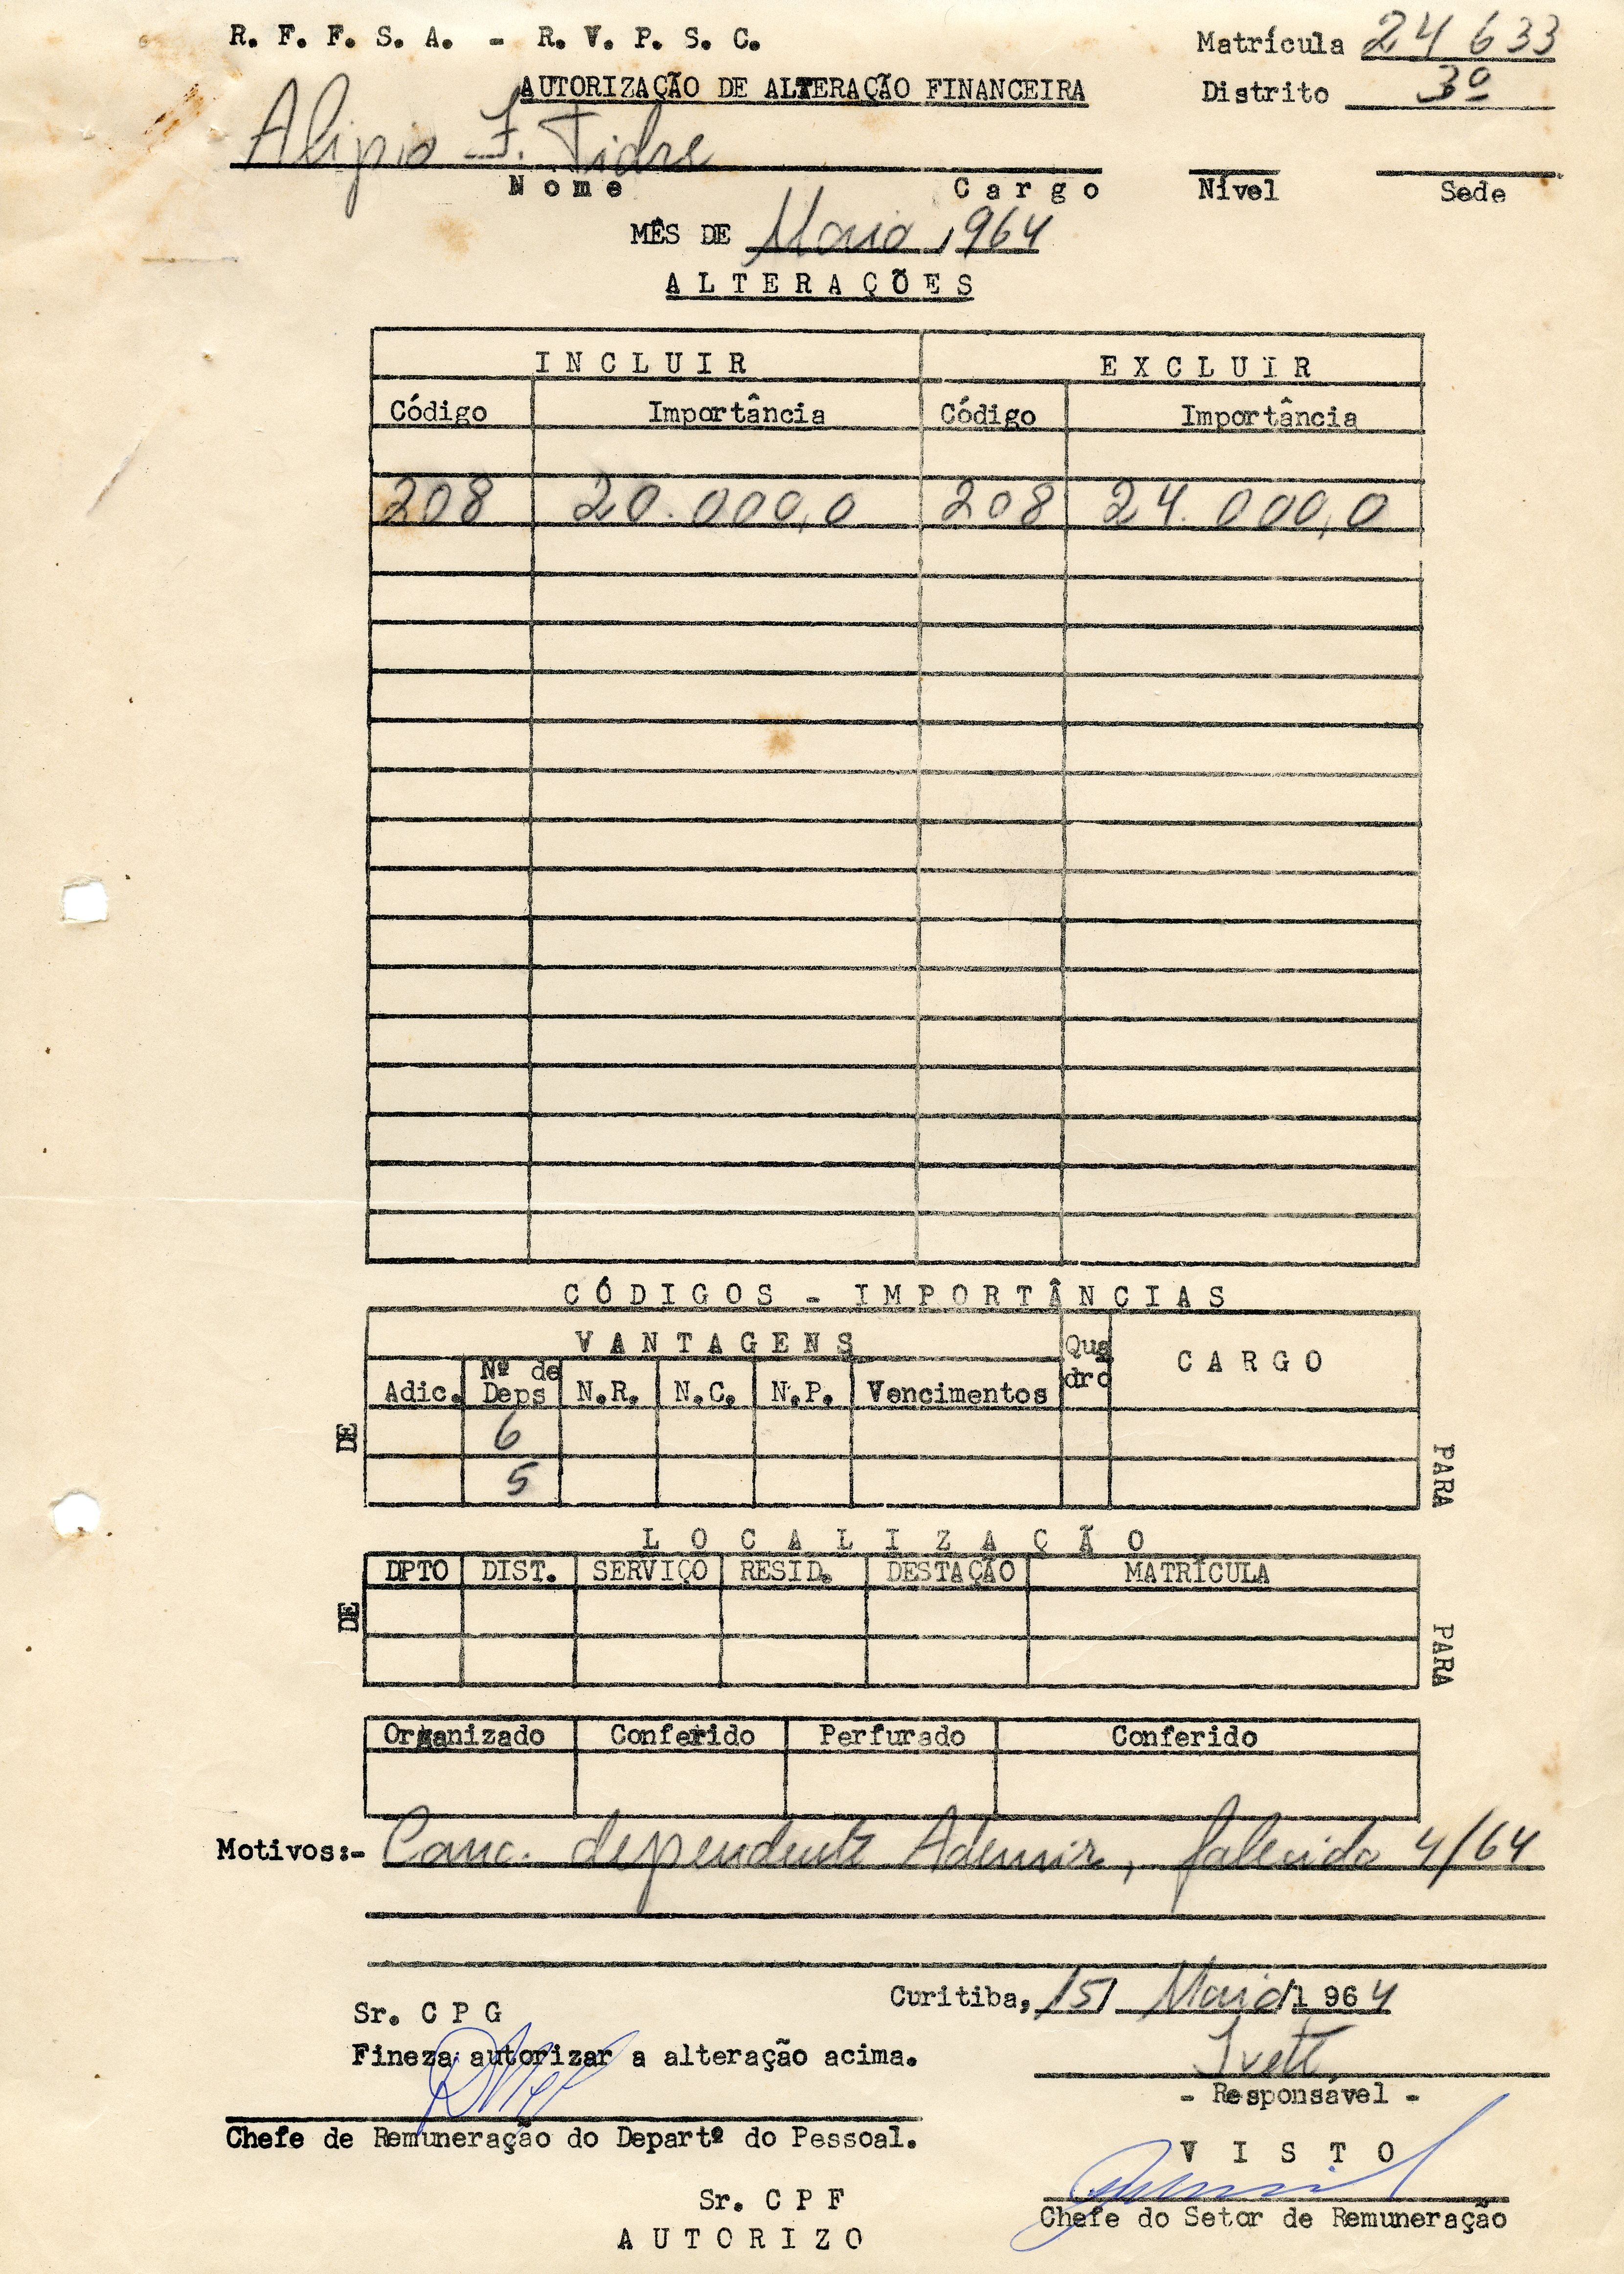 R. F. F. S. A. - R. V. P. S. C.
Matrícula 24 633
AUTORIZAÇÃO DE ALTERAÇÃO FINANCEIRA
Distrito 3º
Alipio F.
Nome Cargo Nível Sede
MÊS DE Maio 1964
ALTERAÇÕES
INCLUIR EXCLUIR
Código Importância Código Importância
208 20.000,0 208 24.000,0
CÓDIGOS - IMPORTÂNCIAS
VANTAGENS Qua dro CARGO
Adic. Nº de Deps N.R. N.C. N.P. Vencimentos
DE 6
5 PARA
LOCALIZAÇÃO
DPTO DIST. SERVIÇO RESID. DESTAÇÃO MATRÍCULA
DE
PARA
Organizado Conferido Perfurado Conferido
Motivos:- Canc. dependente Ademir, falecido 4/64
Curitiba, 15/ Maio/1 964
Sr. C P G
Fineza autorizar a alteração acima.
Ivete
- Responsável -
Chefe de Remuneração do Departº do Pessoal.
VISTO
Sr. C P F
Chefe do Setor de Remuneração
AUTORIZO